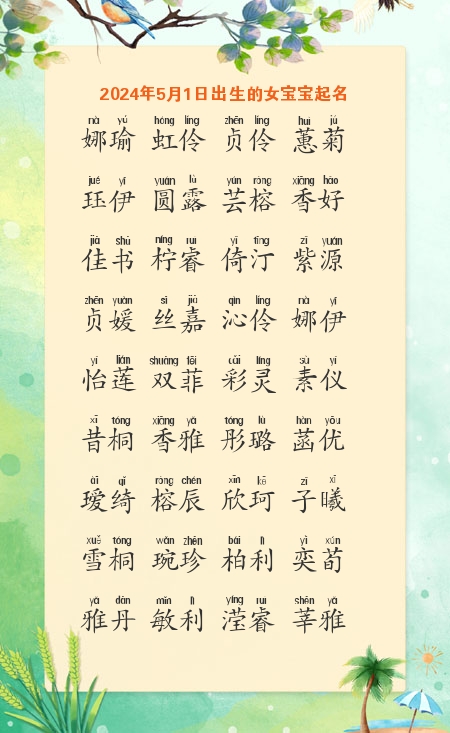 2024年5月1日出生的女宝宝起名
nà yú hóng líng zhēn líng huì jú
娜瑜 虹伶 贞伶 蕙菊
jué yī yuán lù yún róng xiāng hǎo
珏伊 圆露 芸榕 香好
jiā shū níng ruì yǐ tīng zǐ yuán
佳书 柠睿 倚汀 紫源
zhēn yuàn sī jiā qìn líng nà yī
贞媛 丝嘉 沁伶 娜伊
yí lián shuāng fēi cǎi líng sù yí
怡莲 双菲 彩灵 素仪
xī tóng xiāng yǎ tóng lù hàn yōu
昔桐 香雅 彤璐 菡优
ài qǐ róng chén xīn kē zǐ xī
瑷绮 榕辰 欣珂 子曦
xuě tóng wǎn zhēn bǎi lì yì xún
雪桐 琬珍 柏利 奕荀
yǎ dān mǐn lì yíng ruì shēn yǎ
雅丹 敏利 滢睿 莘雅